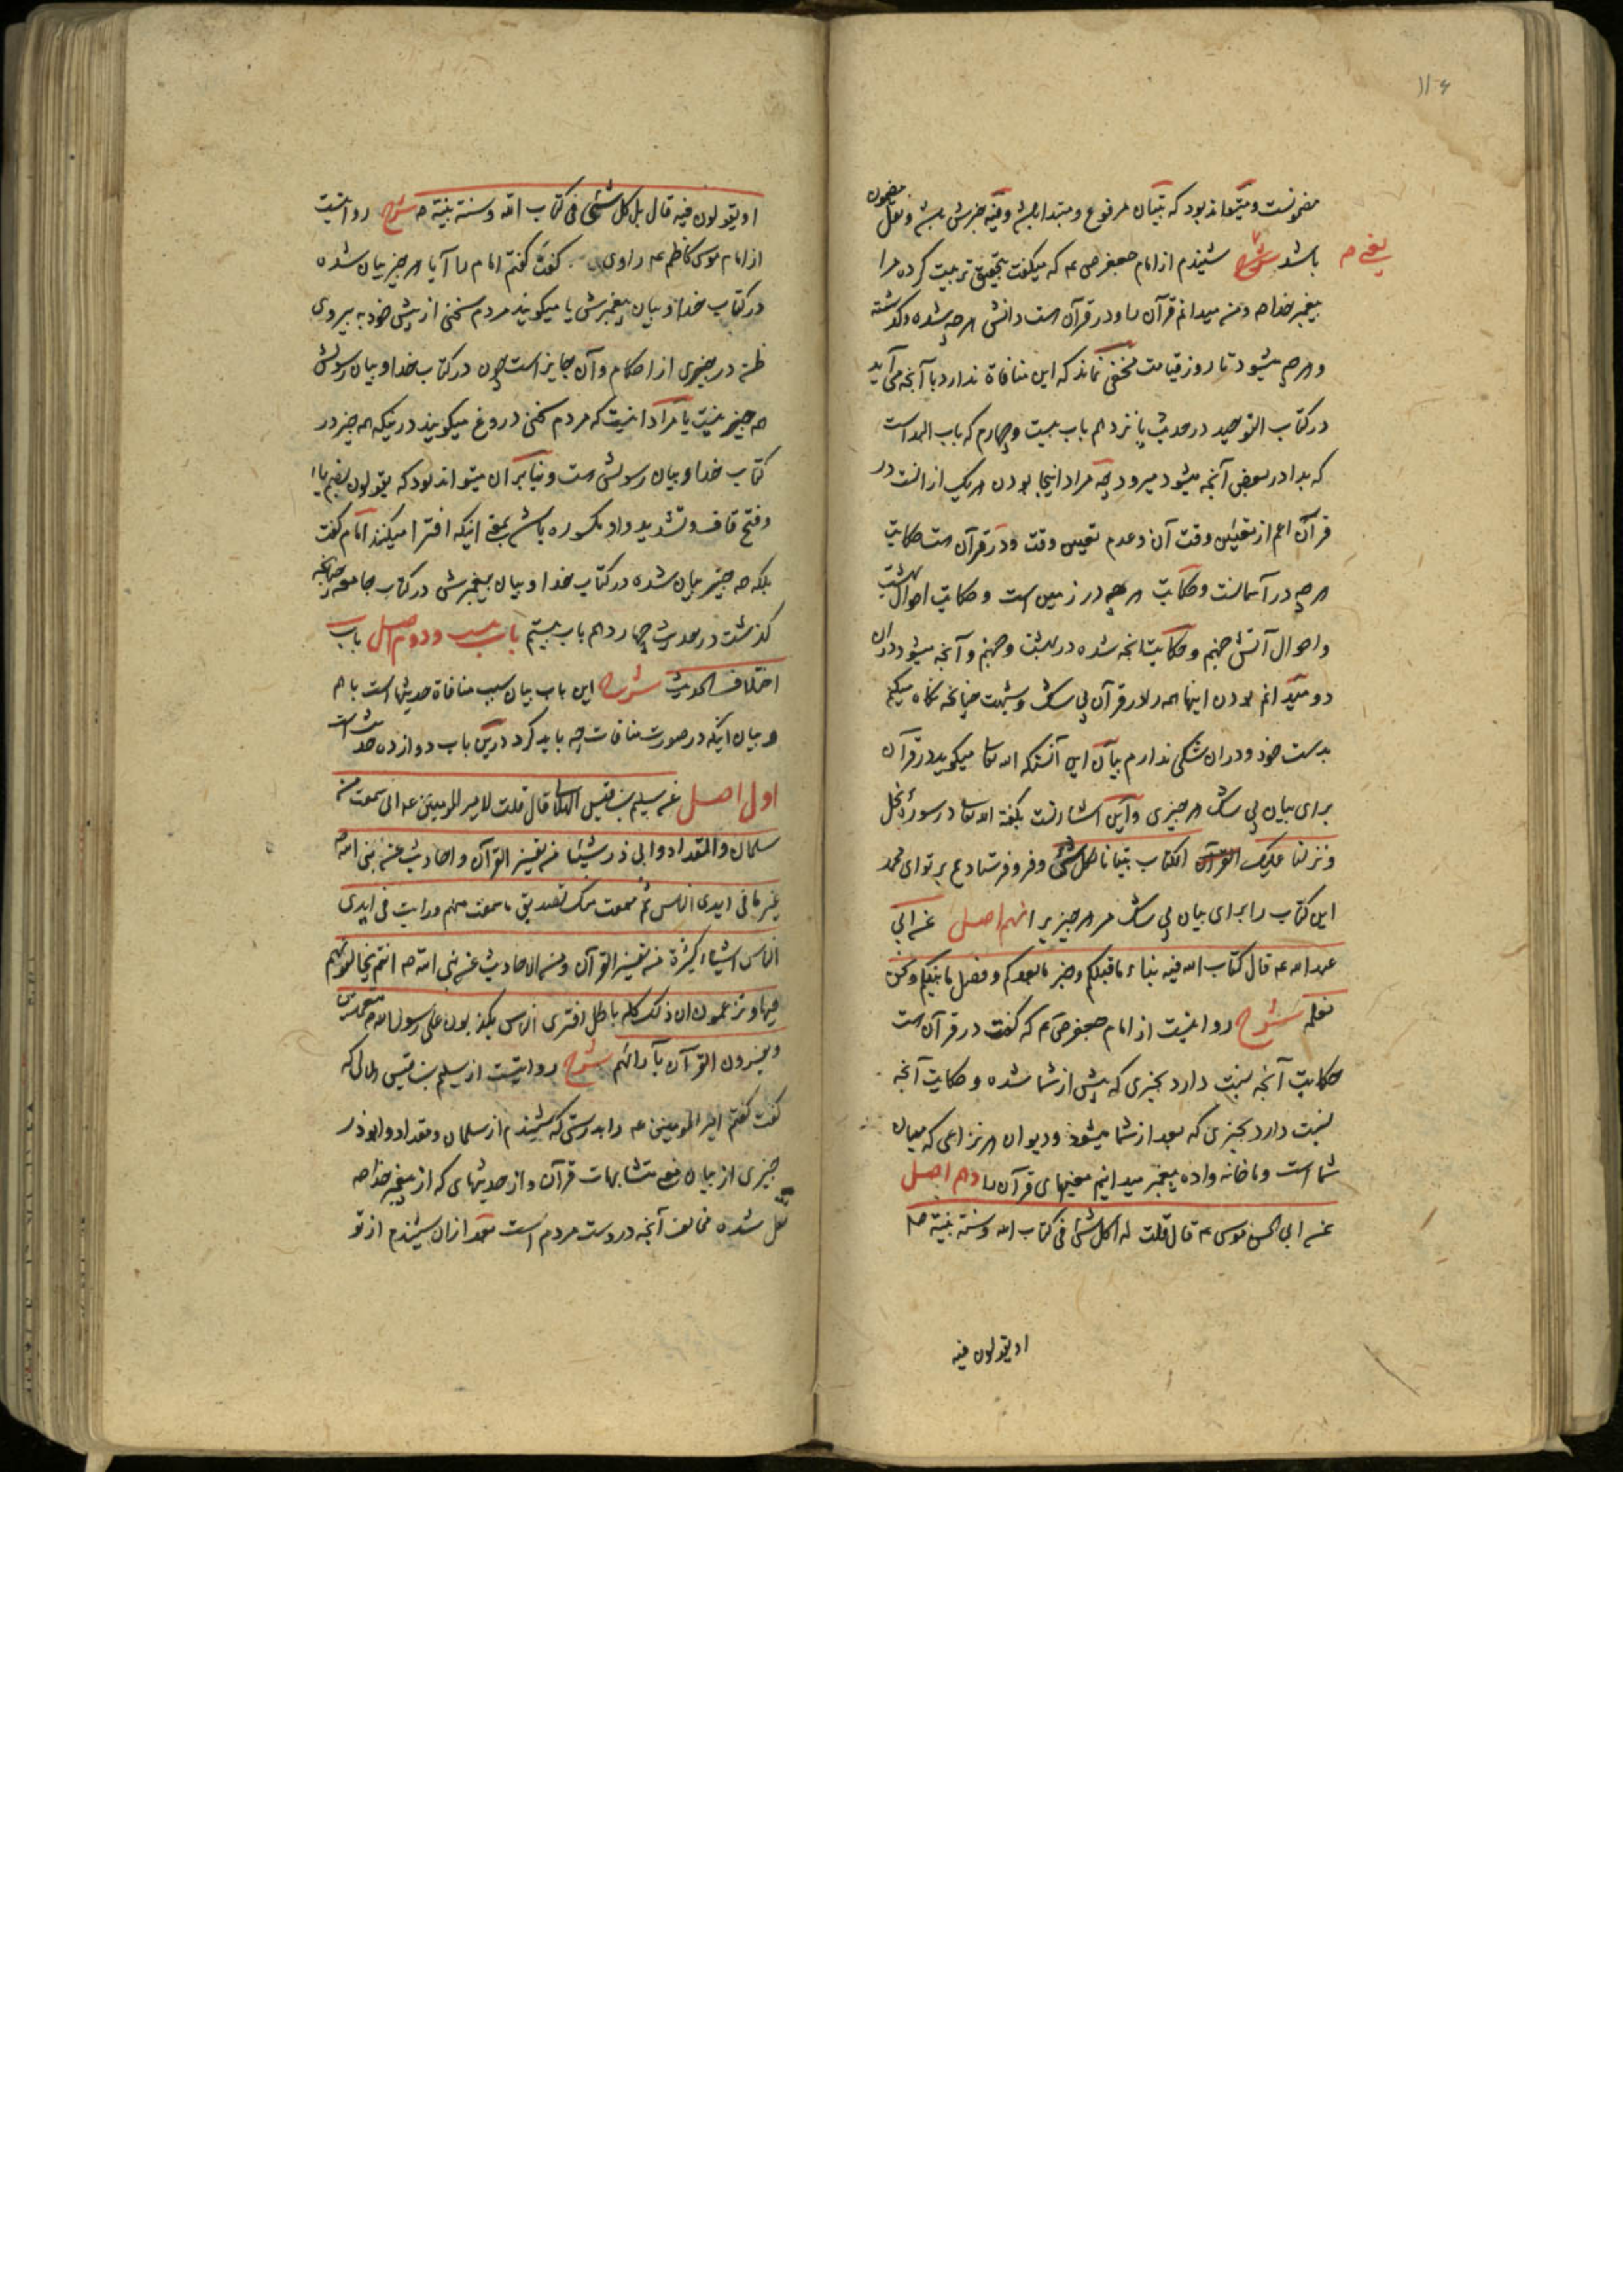 ۱۱۰۶
مضمونست و میتواند بود که تبیان مرفوع و مبتدا باشد و فیه خبرش باشد و نقل مضمون
باشد شرح شنیدم از امام جعفر ص ع م که میگفت بتحقیق تربیت کرده مرا
یعنی م
پیغمبر خدا ص و من میدانم قرآن را و در قرآن است دانش هر چه شده و گذشته
و هر چه میشود تا روز قیامت مخفی نماند که این منافاة ندارد با آنچه می آید
در کتاب التوحید در حدیث پانزدهم باب بیست و چهارم که باب البداست
که بدا در بعض آنچه میشود میرود چه مراد اینجا بودن هر یک ازانست در
قرآن اعم از تعیین وقت آن و عدم تعیین وقت و در قرآن است حکایت
هر چه در آسمانست و حکایت هر چه در زمین است و حکایت احوال بهشت
و احوال آتش جهنم و حکایت آنچه شده در بهشت و جهنم و آنچه میشود دران
دو میدانم بودن اینها همه را در قرآن بی شک و شبهت چنانچه نگاه میکنم
بدست خود و دران شکی ندارم بیان این آنستکه الله تعا میگوید در قرآن
برای بیان بی شک هر چیزی و این اشارتست بگفته الله تعا در سوره نحل
و نزلنا علیک القرآن الکتاب تبیانا لکل شئ و فرو فرستادیم بر تو ای محمد
این کتاب را برای بیان بی شک مر هر چیز را نهم اصل عن ابی
عبد الله ع قال کتاب الله فیه نباء ما قبلکم و خبر ما بعدکم و فصل ما بینکم و نحن
نعلمه شرح روایتست از امام جعفر ص ع م که گفت در قرآن است
حکایت آنچه نسبت دارد بچیزی که پیش از شما شده و حکایت آنچه
نسبت دارد بچیزی که بعد از شما میشود و دیوان هر نزاعی که میان
شما است و ما خانه واده پیغمبر میدانیم معنیهای قرآن را دهم اصل
عن ابی الحسن موسی ع م قال قلت له اکل شئ فی کتاب الله و سنة نبیه ص
او یقولون فیه
او یقولون فیه قال بل کل شئ فی کتاب الله و سنة نبیه ص شرح روایتست
از امام موسی کاظم ع م راوی گفت گفتم امام را آیا هر چیز بیان شده
در کتاب خدا و بیان پیغمبرش یا میگویند مردم سخنی از پیش خود به پیروی
ظن در چیزی از احکام و آن جایز است چون در کتاب خدا و بیان رسولش
همه چیز نیست یا مراد اینست که مردم سخنی دروغ میگویند درینکه همه چیز در
کتاب خدا و بیان رسولش است و بنا بر آن میتواند بود که یقولون بضم یاء
و فتح قاف و تشدید واو مکسوره باشد بمعنی اینکه افترا میکنند امام گفت
بلکه همه چیز بیان شده در کتاب خدا و بیان پیغمبرش در کتاب جامعه چنانچه
گذشت در حدیث چهاردهم باب بیستم باب بیست و دوم اصل باب
اختلاف الحدیث شرح این باب بیان سبب منافاة حدیثها است با هم
و بیان اینکه در صورت منافات چه باید کرد درین باب دوازده حدیث است
اول اصل عن سلیم بن قیس الهلالی قال قلت لامیر المومنین ع انی سمعت من
سلمان والمقداد وابی ذر شیئا من تفسیر القرآن و احادیث عن نبی الله
غیر ما فی ایدی الناس ثم سمعت منک تصدیق ما سمعت منهم ورایت فی ایدی
الناس اشیاء کثیرة من تفسیر القرآن ومن الاحادیث عن نبی الله ص انتم تخالفونهم
فیها وتزعمون ان ذلک کله باطل افتری الناس یکذبون علی رسول الله ص متعمدین
ویفسرون القرآن بآرائهم شرح روایتست از سلیم بن قیس هلالی که
گفت گفتم امیر المومنین ع را بدرستی که شنیدم از سلمان و مقداد و ابوذر
چیزی از بیان معنی متشابهات قرآن و از حدیثهای که از پیغمبر خدا ص
نقل شده مخالف آنچه در دست مردم است بعد ازان شنیدم از تو